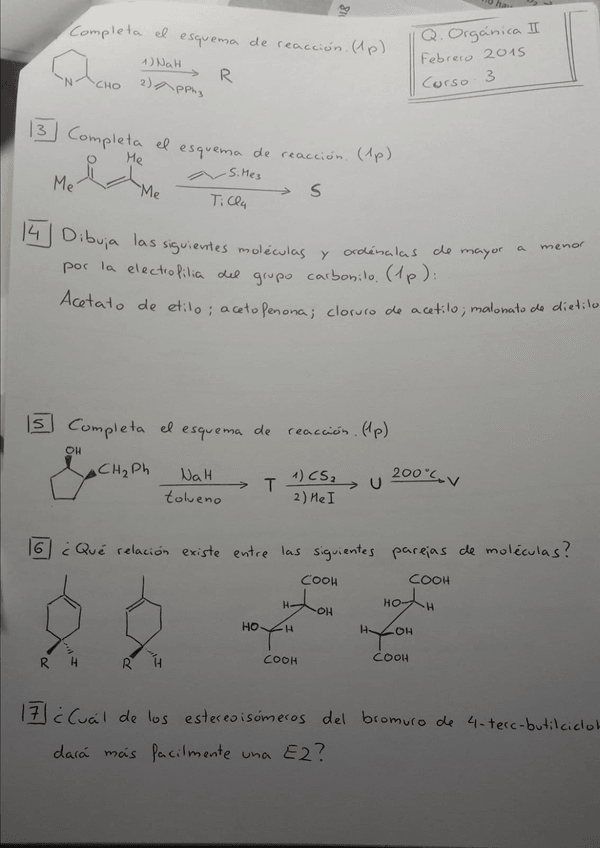 Completa el esquema de reacción. (1p)
Q. Orgánica II
Febrero 2015
Curso 3
N CHO
1) NaH
2) PPh3
R
3 Completa el esquema de reacción. (1p)
O Me
Me Me
SiMe3
TiCl4
S
4 Dibuja las siguientes moléculas y ordénalas de mayor a menor
por la electrofilia del grupo carbonilo. (1p):
Acetato de etilo; acetofenona; cloruro de acetilo; malonato de dietilo
5 Completa el esquema de reacción. (1p)
OH
CH2Ph
NaH
tolueno
T
1) CS2
2) MeI
U
200°C
V
6 ¿Qué relación existe entre las siguientes parejas de moléculas?
COOH COOH
H OH HO H
HO H H OH
COOH COOH
R H R H
7 ¿Cuál de los estereoisómeros del bromuro de 4-terc-butilcicloh
dará más facilmente una E2?